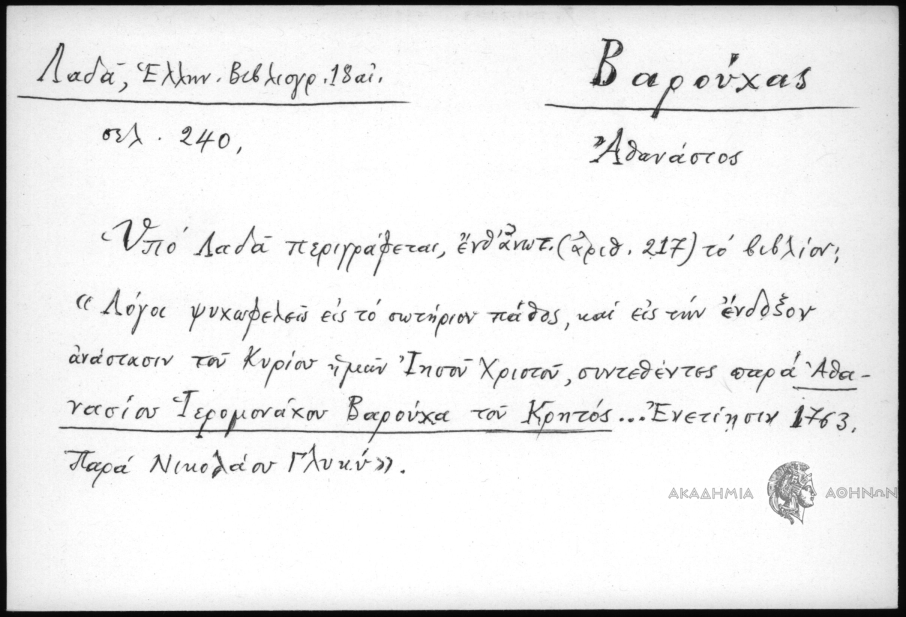 Λαδᾶ, Ἑλλην. Βιβλιογρ. 18 αἰ.
Βαρούχας
σελ. 240,
Ἀθανάσιος
Ὑπό Λαδᾶ περιγράφεται, ἔνθ' ἀνωτ. (ἀριθ. 217) τό βιβλίον:
«Λόγοι ψυχωφελεῖς εἰς τό σωτήριον πάθος, καί εἰς τήν ἔνδοξον
ἀνάστασιν τοῦ Κυρίου ἡμῶν Ἰησοῦ Χριστοῦ, συντεθέντες παρά Ἀθα-
νασίου Ἱερομονάχου Βαρούχα τοῦ Κρητός... Ἐνετίησιν 1763.
Παρά Νικολάου Γλυκύ».
ΑΚΑΔΗΜΙΑ ΑΘΗΝΩΝ